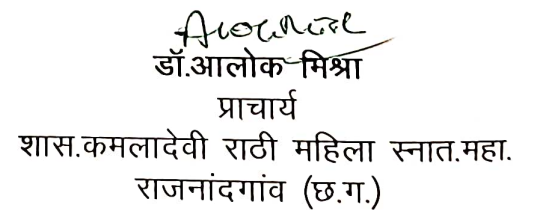 डॉ.आलोक मिश्रा
प्राचार्य
शास.कमलादेवी राठी महिला स्नात.महा.
राजनांदगांव (छ.ग.)